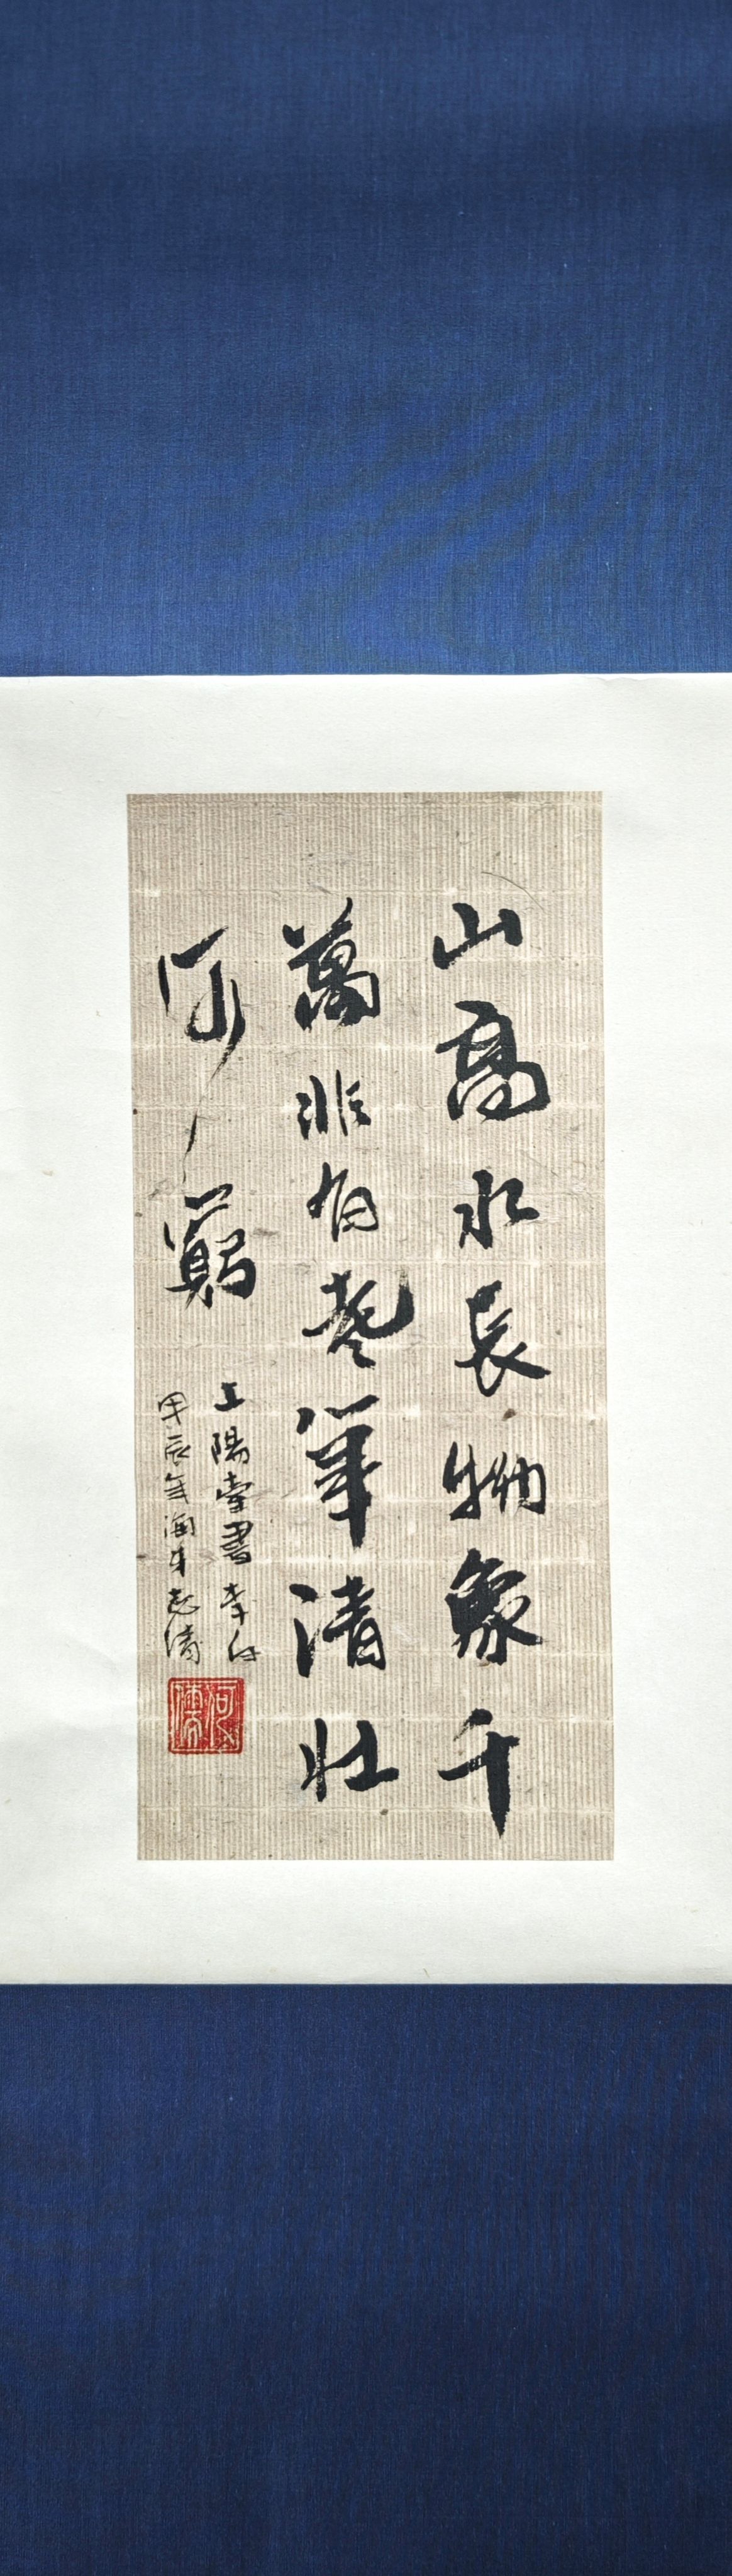 山高水長物象千
萬非有老筆清壯
何窮
上陽臺書李白
甲辰年志